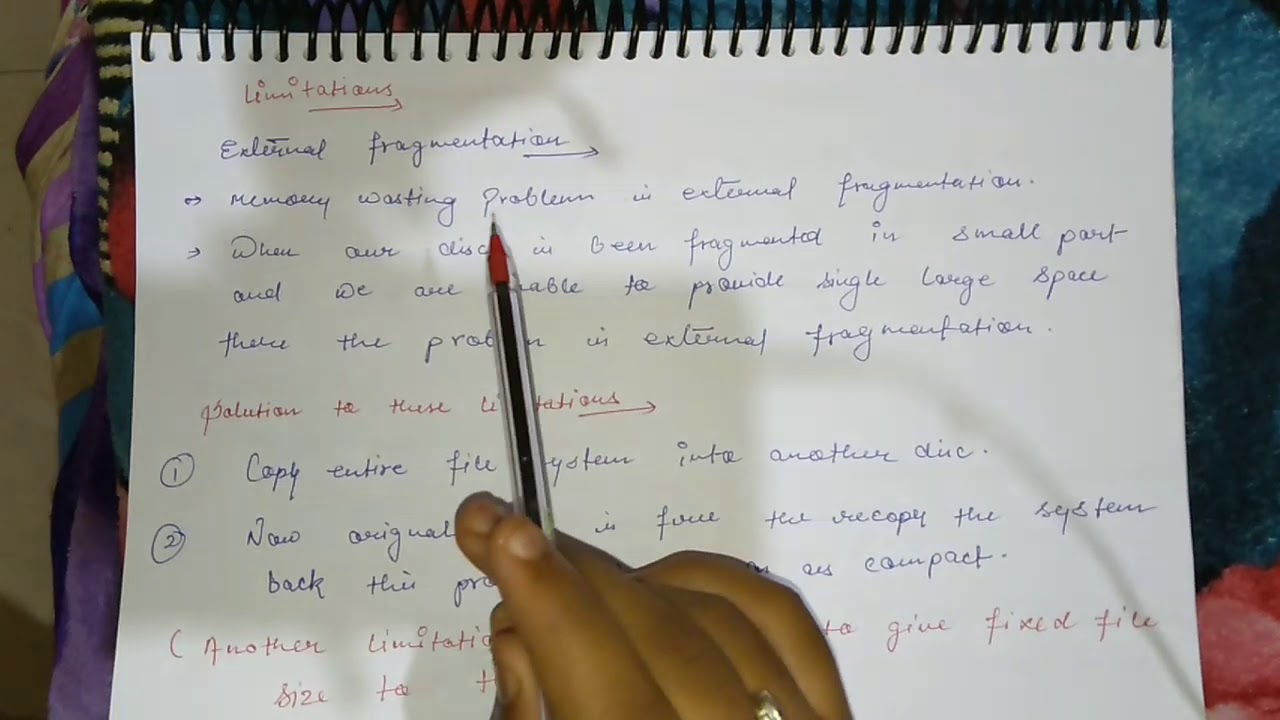 Limitations
External fragmentation
Memory wasting Problem is external fragmentation.
When our disc is been fragmented in small part
and we are to provide single large space
there the problem is external fragmentation.
Solution to these
① Copy entire file system into another disc.
② Now orignal is free the recopy the system
back this as compact.
(Another to give fixed file
size to